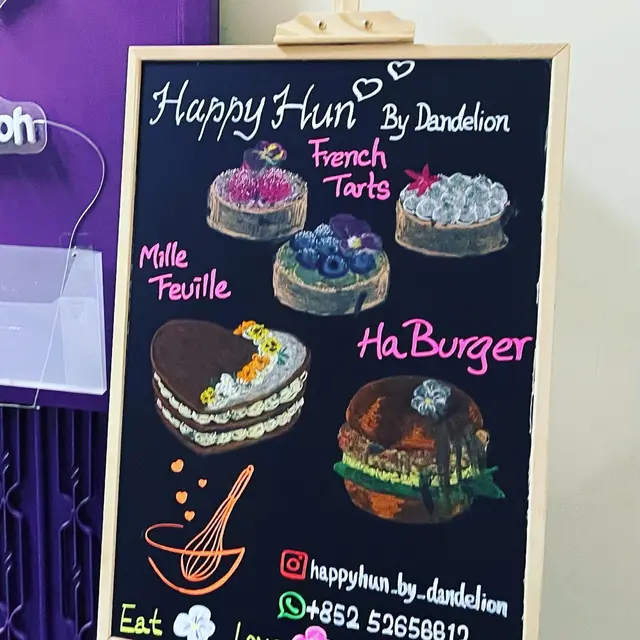 oh
Happy Hun By Dandelion
French
Tarts
Mille
Feuille
HaBurger
happyhun_by_dandelion
+852 52656612
Eat